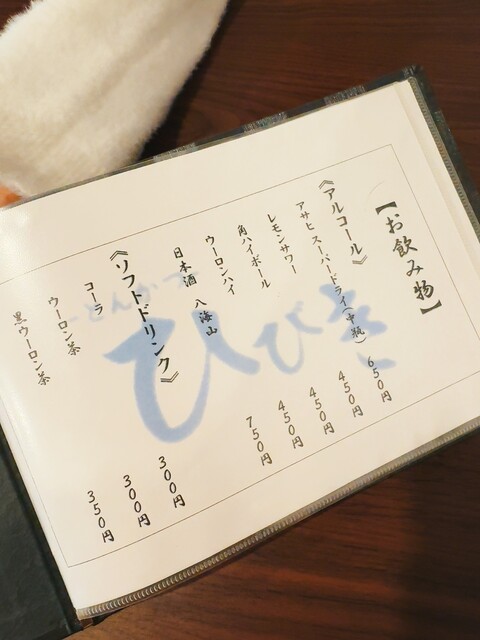 【お飲み物】
《アルコール》
アサヒ スーパードライ(中瓶) 650円
レモンサワー 450円
角ハイボール 450円
ウーロンハイ 450円
日本酒 八海山 750円
《ソフトドリンク》
コーラ 300円
ウーロン茶 300円
黒ウーロン茶 350円
とんかつ
ひびき